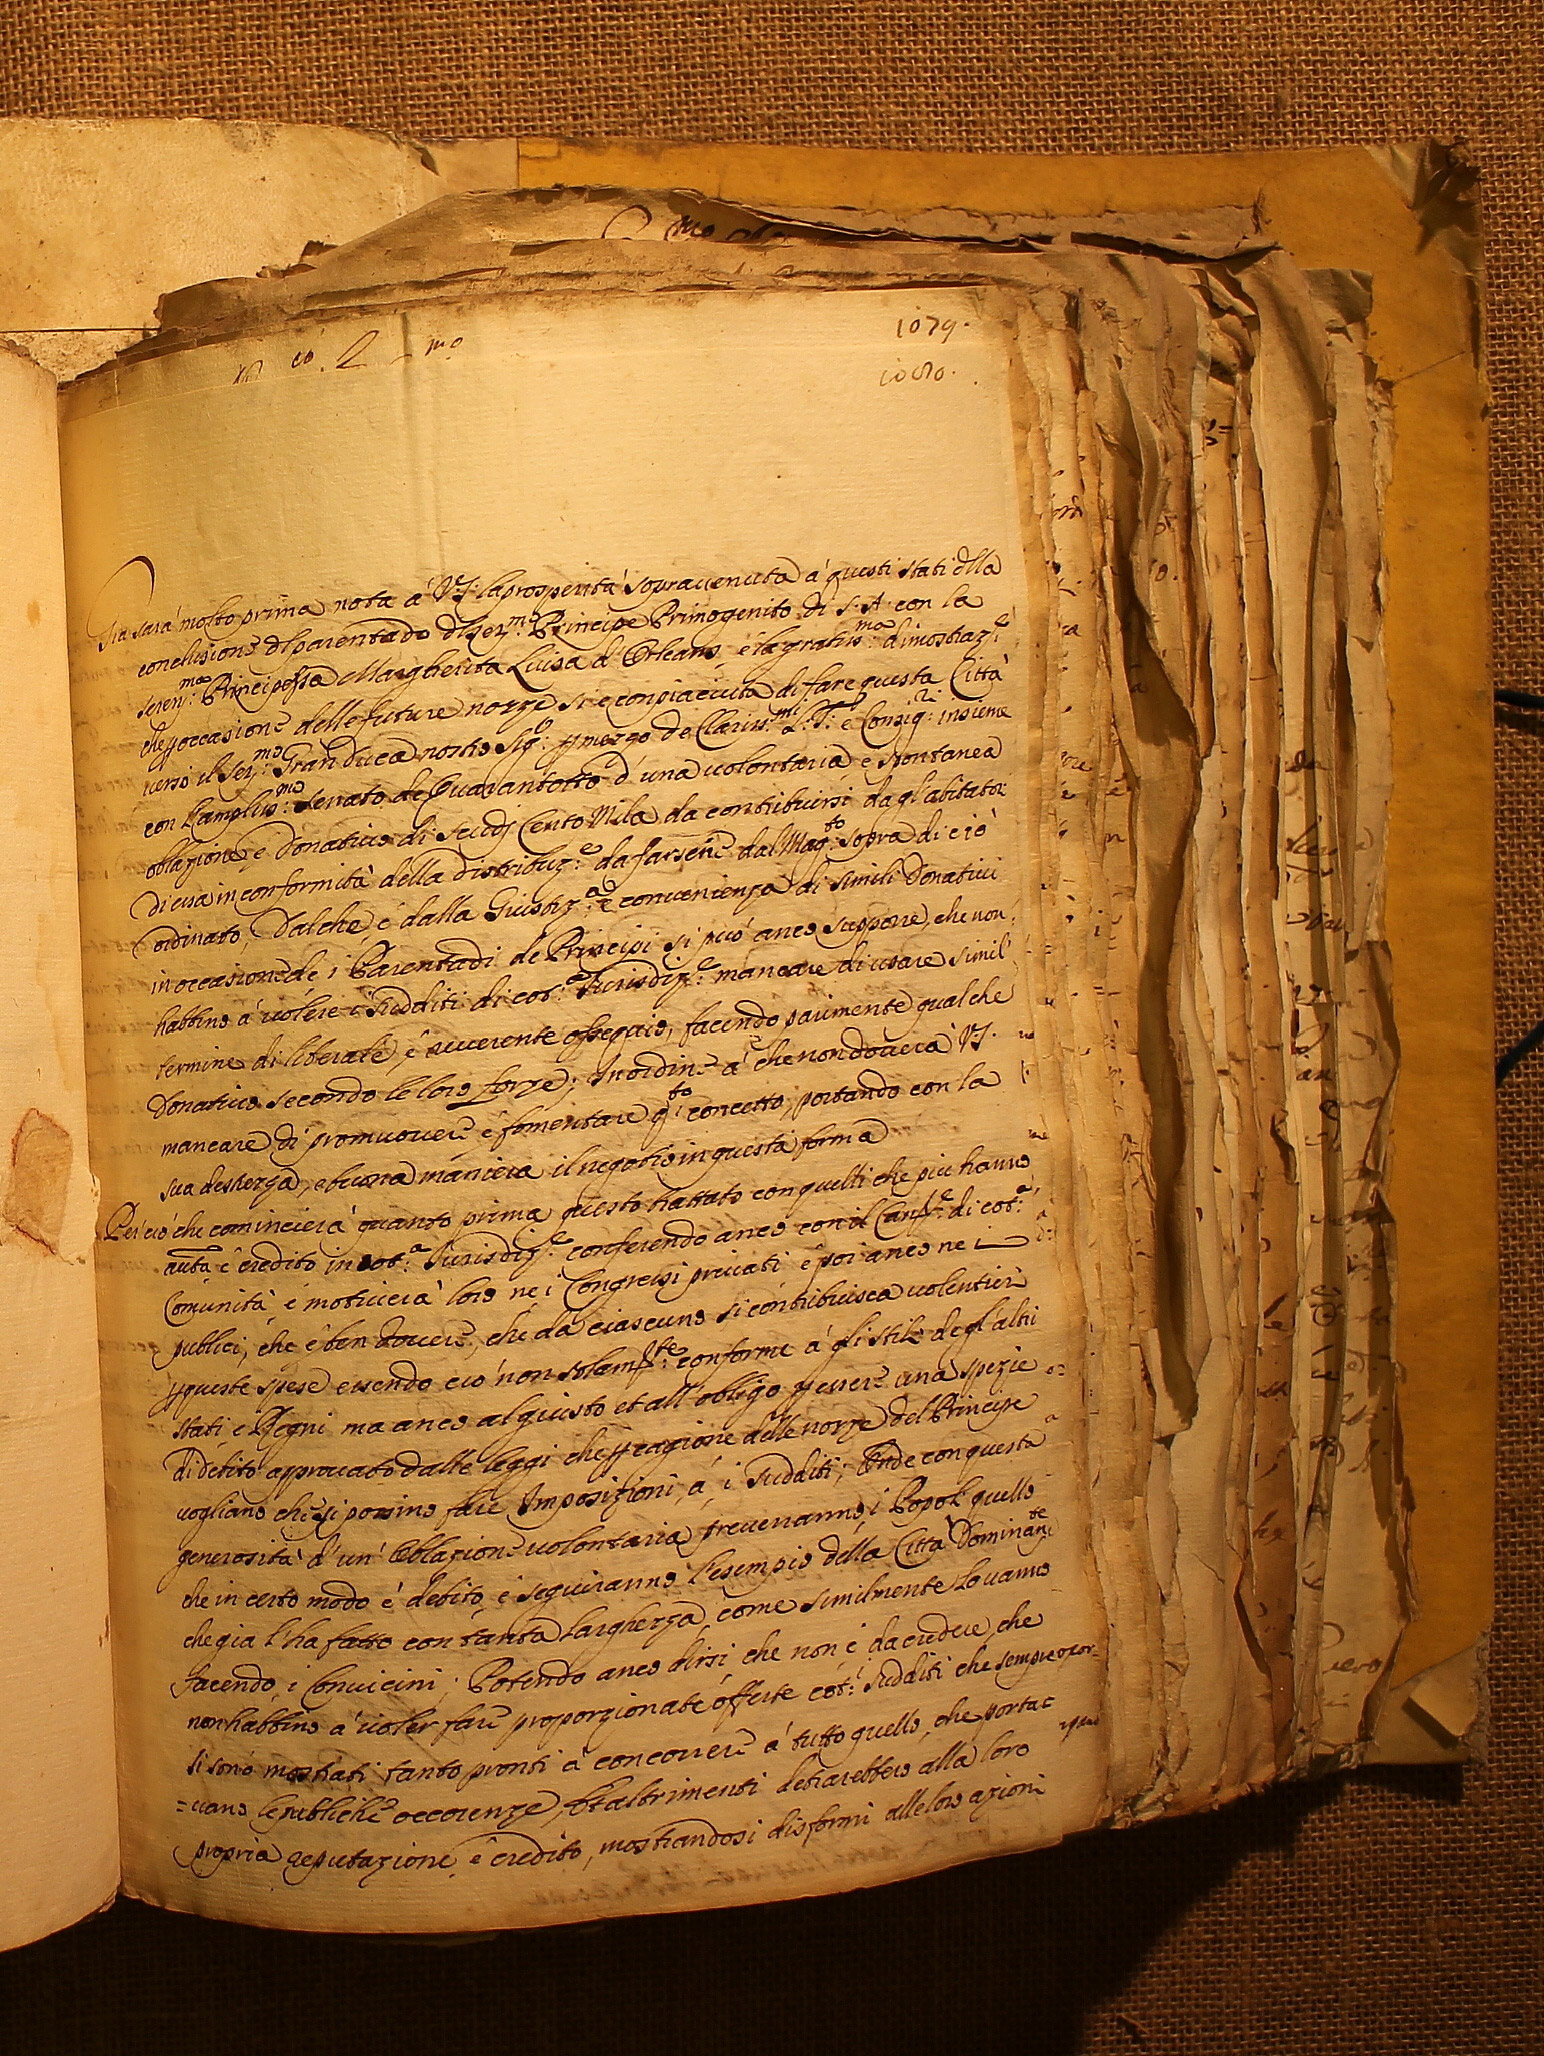 1079.
1080.
Gia sarà molto prima nota à V.S. la prosperità sopravenuta à questi stati della
conclusione del parentado del ser.mo Principe Primogenito di S. A. con la
seren.ma Principessa Margherita Luisa d'Orleans, e la gratiss.ma dimostraz.e
che p occasione delle future nozze si è conpiaciuta di fare questa Città
verso il Ser.mo Gran Duca nostro Sig.e p mezzo de Clariss.mi L.T. e Consig.ri insieme
con l'ampliss.mo Senato de Quarantotto d'una volontaria e spontanea
oblazione e Donativo di scudi Cento Mila da contribuirsi dagl'abitator
di essa in conformità della distribuz.e da farsene dal Mag.to sopra di ciò
ordinato, Dal che, e dalla Giustiz.a e convenienza di simili Donativi
in occasione de i Parentadi de Principi si può anco suppore, che non
habbino à volere i sudditi di cot.a Jurisdiz.e mancare di usare simil
termine di liberale, e reverente ossequio, facendo parimente qualche
Donativo secondo le loro forze; In ordine à che non doverà V.S.
mancare di promuovere e fomentare q.to concetto, portando con la
sua destrezza, e buona maniera il negotio in questa forma
Per ciò che comincierà quanto prima questo trattato con quelli che più hanno
autà e credito in cot.a Jurisdiz.e conferendo anco con il Canc.e di cot.a
Comunità e motiverà loro ne i Congressi privati e poi anco ne i
publici, che è ben dovere, che da ciascuno si contribuisca volentieri
p queste spese essendo ciò non solam.te conforme à gli stili degl'altri
stati e Regni ma anco al giusto et all'obbligo p essere una spezie
di debito approvato dalle leggi che p cagione delle nozze del Principe
vogliano che si possino fare Imposizioni à i sudditi; Onde con questa
generosità d'un' Oblazione volontaria prevenanno i Popoli quello
che in certo modo è debito, e seguiranno l'esempio della Città Dominante
che gia l'ha fatto con tanta larghezza, come similmente lo vanno
facendo i Convicini; Potendo anco dirsi che non è da credere, che
non habbino à voler fare proporzionate offerte cot.i sudditi che sempre
si sono mostrati tanto pronti à concorrere à tutto quello, che porta
=vano le publiche occorenze, Et altrimenti detrarebbero alla loro
propria reputazione, e credito, mostrandosi disformi alle loro azioni